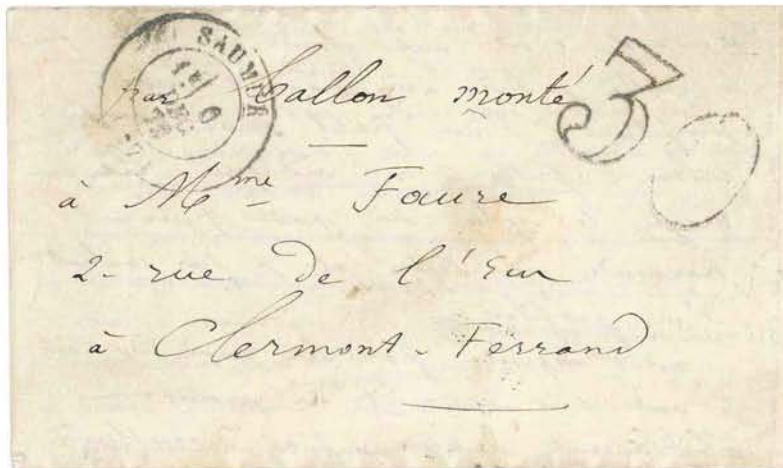 SAUMUR
1E/ 6
DEC.
70
30
par ballon monté
à Mme Faure
2 - rue de l'
à Clermont-Ferrand